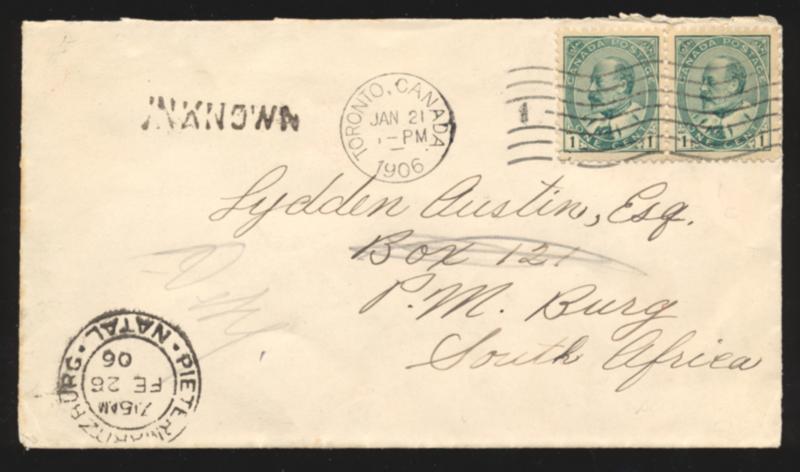 UNKNOWN
TORONTO, CANADA
JAN 21
-PM
1906
1
CANADA POSTAGE
1 ONE CENT 1
CANADA POSTAGE
1 ONE CENT 1
Lydden Austin, Esq.
Box 121
P.M. Burg
South Africa
PIETERMARITZBURG · NATAL ·
7.15AM
FE 26
06